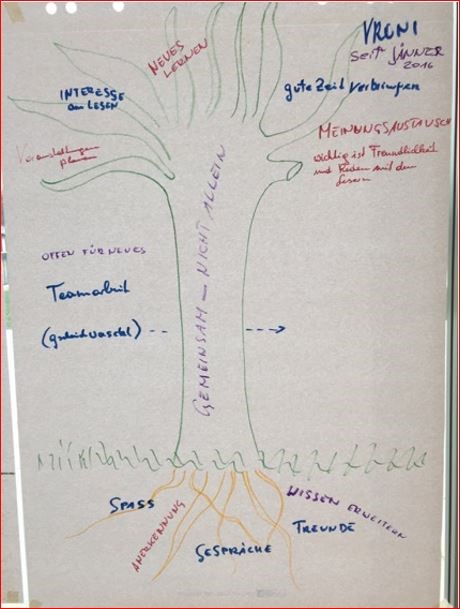 VRONI
seit JÄNNER
2016
NEUES
LERNEN
INTERESSE
am LESEN
gute Zeit verbringen
Veranstaltungen
planen
MEINUNGSAUSTAUSCH
wichtig ist Freundlichkeit
und Reden mit den
Lesern
GEMEINSAM – NICHT ALLEIN
OFFEN FÜR NEUES
Teamarbeit
SPASS
ANERKENNUNG
GESPRÄCHE
WISSEN ERWEITERN
FREUNDE